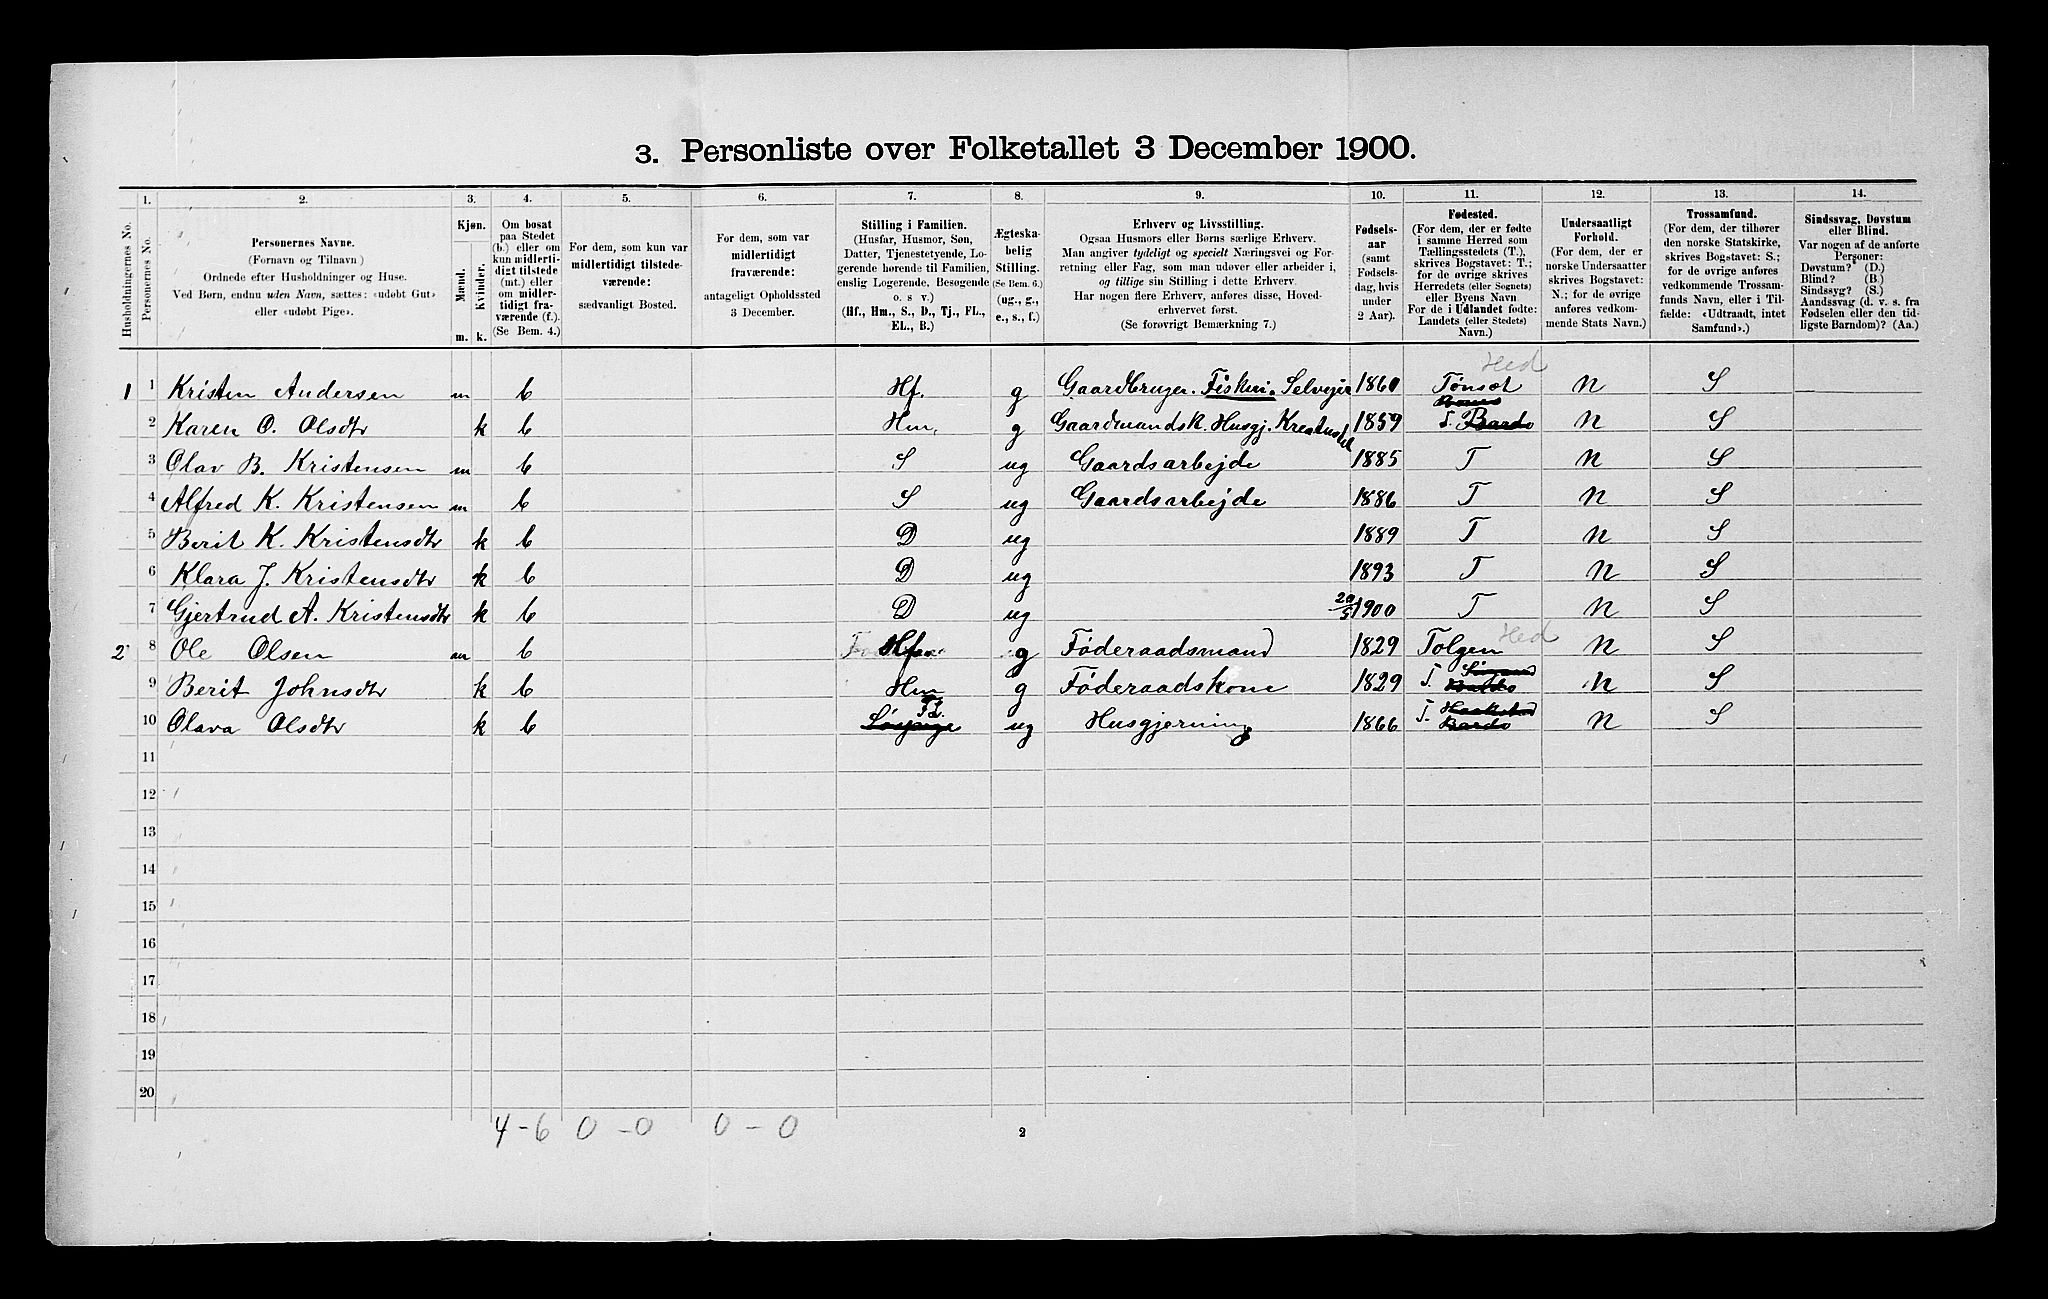 3. Personliste over Folketallet 3 December 1900.
1. 2. 3. 4. 5. 6. 7. 8. 9. 10. 11. 12. 13. 14.
Husholdningernes No.
Personernes No.
Personernes Navne.
(Fornavn og Tilnavn)
Ordnede efter Husholdninger og Huse.
Ved Børn, endnu uden Navn, sættes: «udøbt Gut»
eller «udøbt Pige».
Kjøn.
Mænd.
Kvinder.
m. k.
Om bosat
paa Stedet
(b.) eller om
kun midlerti-
digt tilstede
(mt.) eller
om midler-
tidigt fra-
værende (f.).
(Se Bem. 4.)
For dem, som kun var
midlertidigt tilstede-
værende:
sædvanligt Bosted.
For dem, som var
midlertidigt
fraværende:
antageligt Opholdssted
3 December.
Stilling i Familien.
(Husfar, Husmor, Søn,
Datter, Tjenestetyende, Lo-
gerende hørende til Familien,
enslig Logerende, Besøgende
o. s v.)
(Hf., Hm., S., D., Tj., FL.,
EL., B.)
Ægteska-
belig
Stilling.
(Se Bem. 6.)
(ug., g.,
e., s., f.)
Erhverv og Livsstilling.
Ogsaa Husmors eller Børns særlige Erhverv.
Man angiver tydeligt og specielt Næringsvei og For-
retning eller Fag, som man udøver eller arbeider i,
og tillige sin Stilling i dette Erhverv.
Har nogen flere Erhverv, anføres disse, Hoved-
erhvervet først.
(Se forøvrigt Bemærkning 7.)
Fødsels-
aar
(samt
Fødsels-
dag, hvis
under
2 Aar).
Fødested.
(For dem, der er fødte
i samme Herred som
Tællingsstedets (T.),
skrives Bogstavet: T.;
for de øvrige skrives
Herredets (eller Sognets)
eller Byens Navn
For de i Udlandet fødte:
Landets (eller Stedets)
Navn.)
Undersaatligt
Forhold.
(For dem, der er
norske Undersaatter
skrives Bogstavet:
N.; for de øvrige
anføres vedkom-
mende Stats Navn.)
Trossamfund.
(For dem, der tilhører
den norske Statskirke,
skrives Bogstavet: S.;
for de øvrige anføres
vedkommende Trossam-
funds Navn, eller i Til-
fælde: «Udtraadt, intet
Samfund».)
Sindssvag, Døvstum
eller Blind.
Var nogen af de anførte
Personer:
Døvstum? (D.)
Blind? (B.)
Sindssyg? (S.)
Aandssvag (d. v. s. fra
Fødselen eller den tid-
ligste Barndom)? (Aa.)
Hed
1 1 Kristen Andersen m b Hf. g Gaardbruger. Fiskeri. Selvejer 1860 Tönset N S
2 Karen O. Olsdtr k b Hm. g Gaardmandsk. Husgj. Kreaturstel 1859 T. Bardo N S
3 Olav B. Kristensen m b S ug Gaardsarbejde 1885 T N S
4 Alfred K. Kristensen m b S ug Gaardsarbejde 1886 T N S
5 Berit K. Kristensdtr k b D ug 1889 T N S
6 Klara J. Kristensdtr k b D ug 1893 T N S
7 Gjertrud A. Kristensdtr k b D ug 20/5 1900 T N S
Hed
2 8 Ole Olsen m b Hf g Föderaadsmand 1829 Tolgen N S
9 Berit Johnsdtr k b Hm g Föderaadskone 1829 T. N S
10 Olava Olsdtr k b FL. ug Husgjerning 1866 T. Bardo N S
11
12
13
14
15
16
17
18
19
20
4-6 0-0 0-0
2